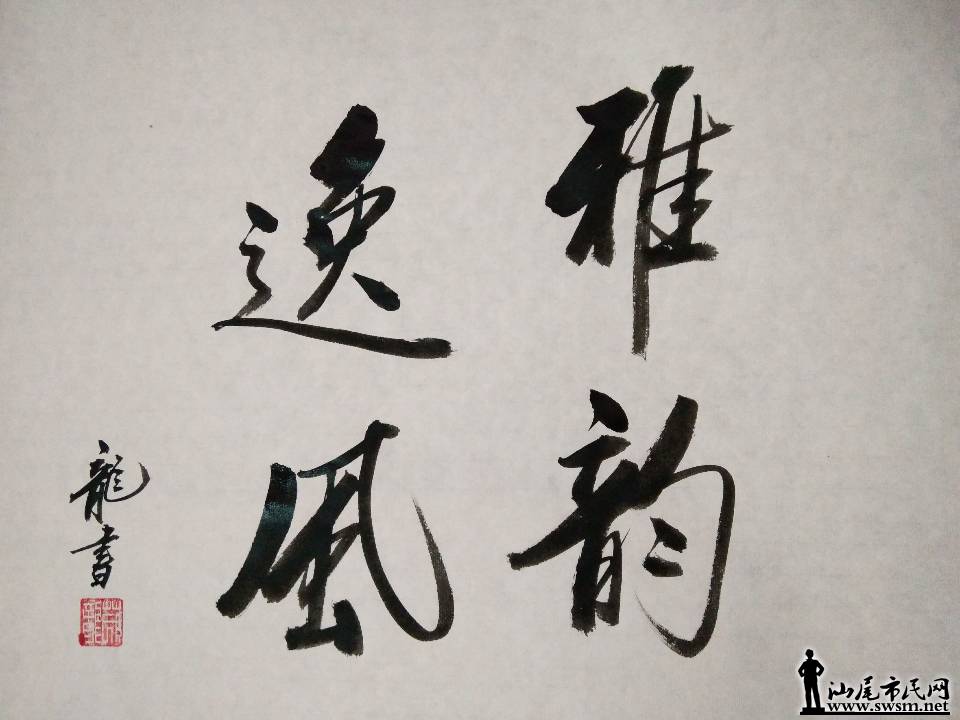 雅韵
逸風
龍書
汕尾市民网
www.swsm.net